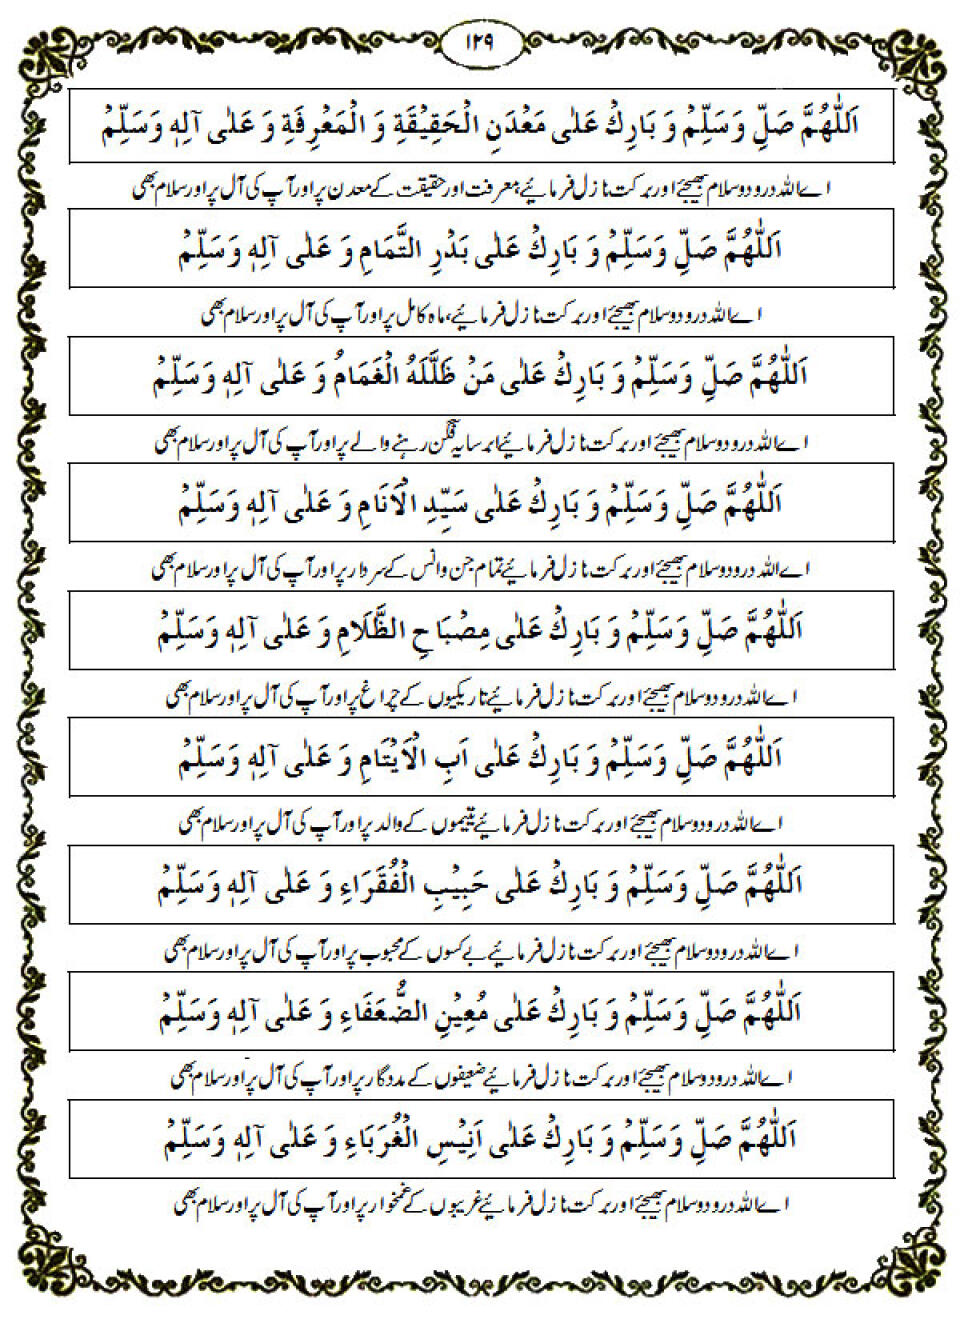 ۱۲۹
اَللّٰهُمَّ صَلِّ وَسَلِّمْ وَ بَارِكْ عَلٰى مَعْدَنِ الْحَقِيْقَةِ وَ الْمَعْرِفَةِ وَ عَلٰى آلِهٖ وَسَلِّمْ
اے اللہ درود و سلام بھیجئے اور برکت نازل فرمائیے معرفت اور حقیقت کے معدن پر اور آپ کی آل پر اور سلام بھی
اَللّٰهُمَّ صَلِّ وَسَلِّمْ وَ بَارِكْ عَلٰى بَدْرِ التَّمَامِ وَ عَلٰى آلِهٖ وَسَلِّمْ
اے اللہ درود و سلام بھیجئے اور برکت نازل فرمائیے، ماہ کامل پر اور آپ کی آل پر اور سلام بھی
اَللّٰهُمَّ صَلِّ وَسَلِّمْ وَ بَارِكْ عَلٰى مَنْ ظَلَّلَهُ الْغَمَامُ وَ عَلٰى آلِهٖ وَسَلِّمْ
اے اللہ درود و سلام بھیجئے اور برکت نازل فرمائیے ابر سایہ فگن رہنے والے پر اور آپ کی آل پر اور سلام بھی
اَللّٰهُمَّ صَلِّ وَسَلِّمْ وَ بَارِكْ عَلٰى سَيِّدِ الْاَنَامِ وَ عَلٰى آلِهٖ وَسَلِّمْ
اے اللہ درود و سلام بھیجئے اور برکت نازل فرمائیے تمام جن و انس کے سردار پر اور آپ کی آل پر اور سلام بھی
اَللّٰهُمَّ صَلِّ وَسَلِّمْ وَ بَارِكْ عَلٰى مِصْبَاحِ الظَّلَامِ وَ عَلٰى آلِهٖ وَسَلِّمْ
اے اللہ درود و سلام بھیجئے اور برکت نازل فرمائیے تاریکیوں کے چراغ پر اور آپ کی آل پر اور سلام بھی
اَللّٰهُمَّ صَلِّ وَسَلِّمْ وَ بَارِكْ عَلٰى اَبِ الْاَيْتَامِ وَ عَلٰى آلِهٖ وَسَلِّمْ
اے اللہ درود و سلام بھیجئے اور برکت نازل فرمائیے یتیموں کے والد پر اور آپ کی آل پر اور سلام بھی
اَللّٰهُمَّ صَلِّ وَسَلِّمْ وَ بَارِكْ عَلٰى حَبِيْبِ الْفُقَرَاءِ وَ عَلٰى آلِهٖ وَسَلِّمْ
اے اللہ درود و سلام بھیجئے اور برکت نازل فرمائیے بے کسوں کے محبوب پر اور آپ کی آل پر اور سلام بھی
اَللّٰهُمَّ صَلِّ وَسَلِّمْ وَ بَارِكْ عَلٰى مُعِيْنِ الضُّعَفَاءِ وَ عَلٰى آلِهٖ وَسَلِّمْ
اے اللہ درود و سلام بھیجئے اور برکت نازل فرمائیے ضعیفوں کے مددگار پر اور آپ کی آل پر اور سلام بھی
اَللّٰهُمَّ صَلِّ وَسَلِّمْ وَ بَارِكْ عَلٰى اَنِيْسِ الْغُرَبَاءِ وَ عَلٰى آلِهٖ وَسَلِّمْ
اے اللہ درود و سلام بھیجئے اور برکت نازل فرمائیے غریبوں کے غمخوار پر اور آپ کی آل پر اور سلام بھی